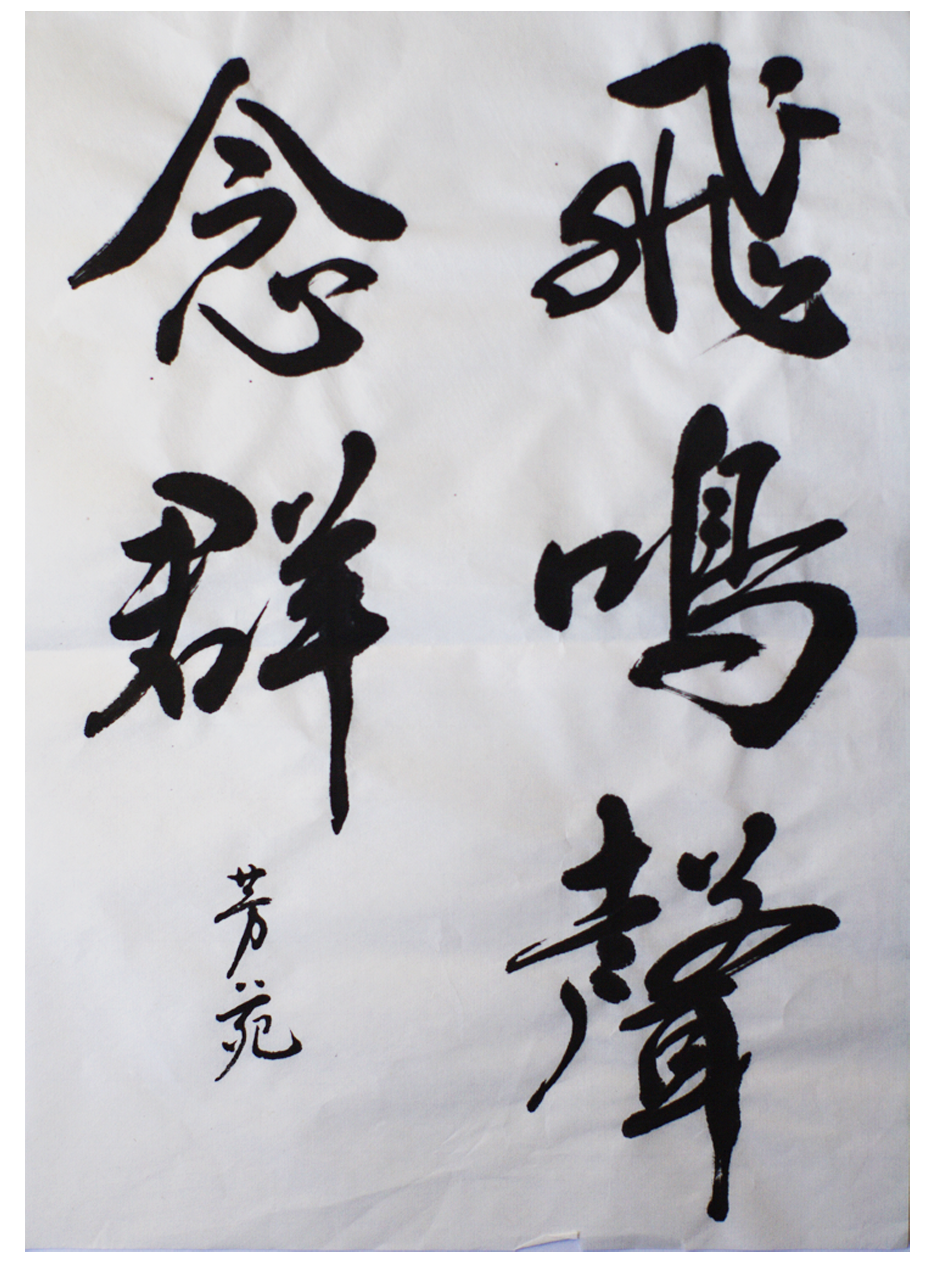 飛鳴聲
念群
芳苑